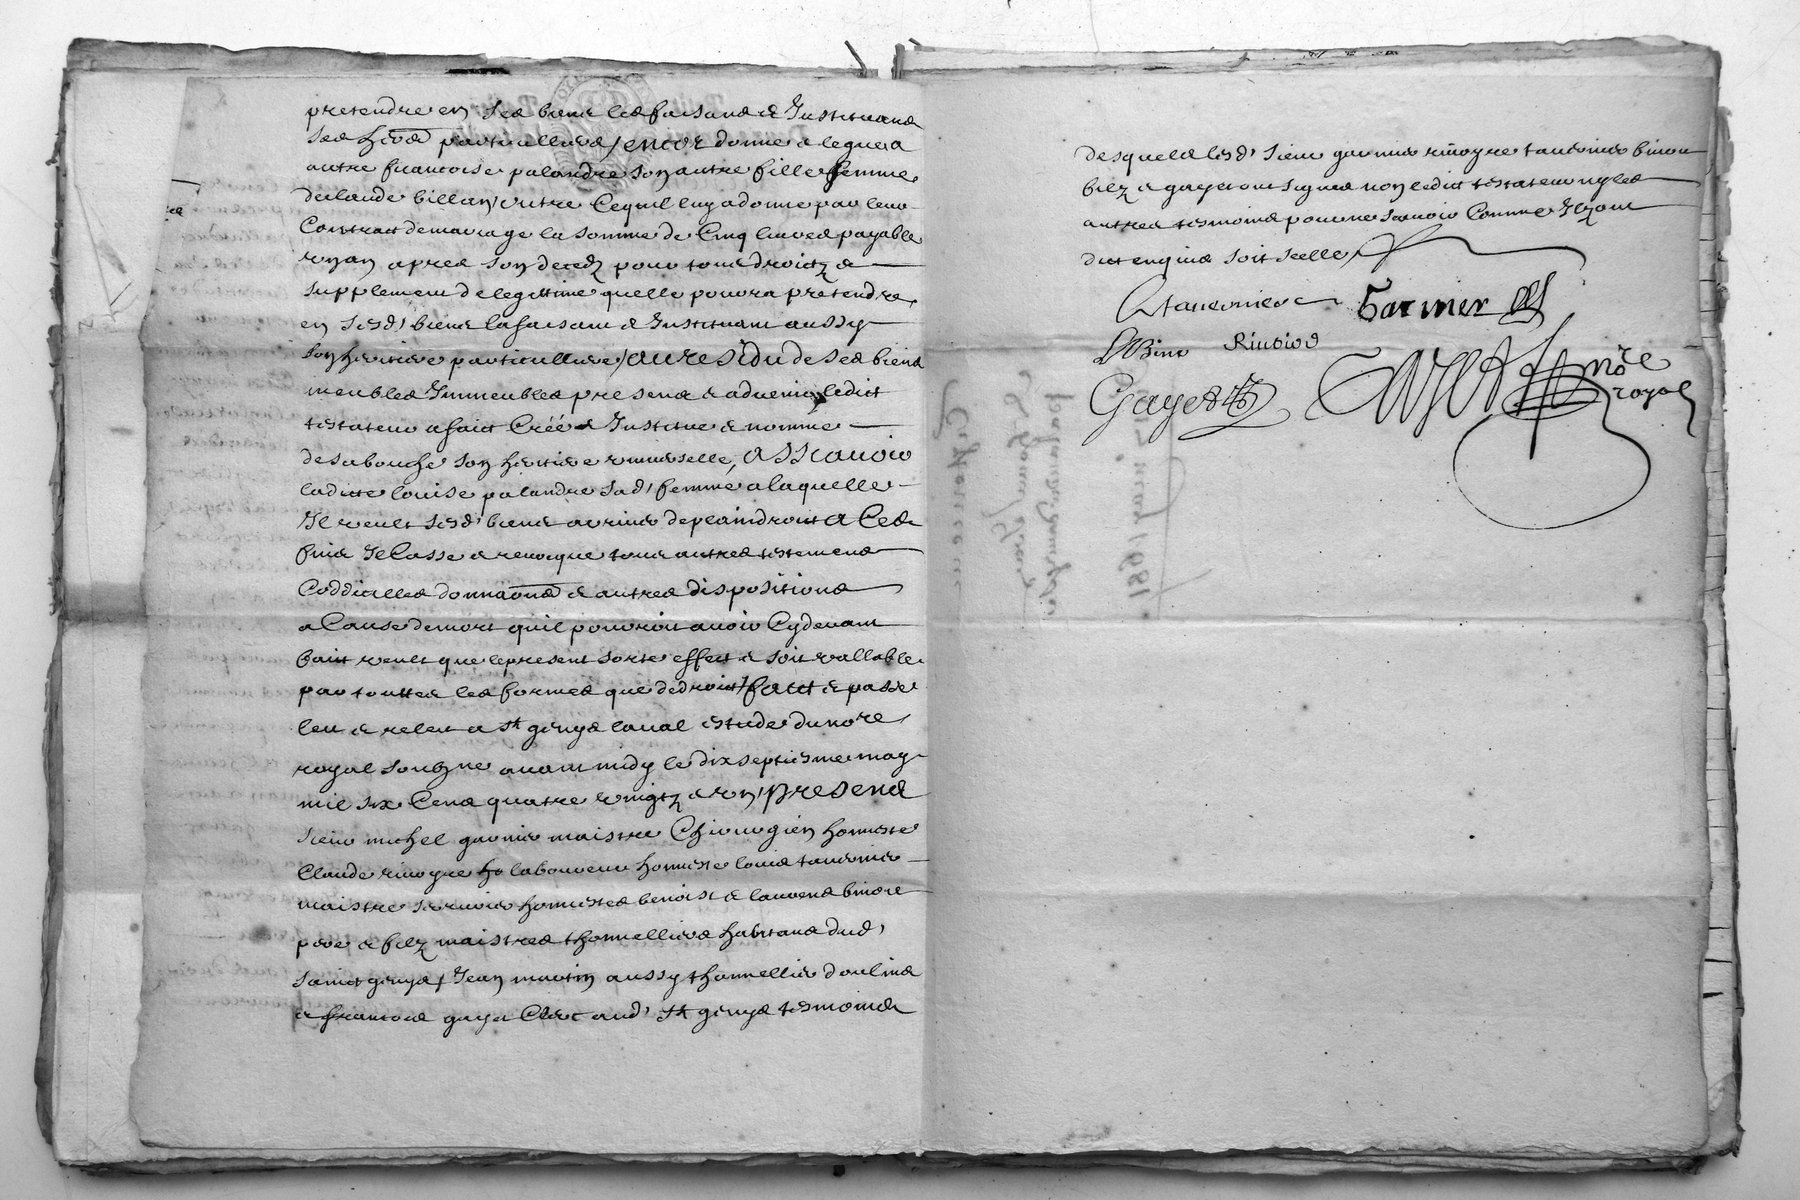 pretendre en ses biens les faisans & Instituans
ses hers particullieres / encor donne & legue a
autre francoise palandre son autre fille femme
de claude billan outre ce quil luy a donne par leur
Contract de mariage la somme de Cinq livres payable
un an apres son decedz pour tous droictz &
supplement de legittime quelle pourra pretendre
en sesd' biens la faisant & Instituant aussy
son heritiere particulliere / au residu de ses biens
meubles Immeubles presens & advenir ledict
testateur a faict Créé & Institue & nomme
de sa bouche son heritiere universelle, assavoir
ladicte louise palandre sad' femme a laquelle
Il veult sesd' biens arriver de plain droict A Ces
fins Il Casse & revocque tous autres testemens
Coddicilles donnaons & autres dispositions
a Cause de mort quil pourroit avoir Cydevant
faict veult que le present sorte effect & soit vallable
par touttes les formes que de droict / faict & passe
leu & releu a st genys laval estude du nore
royal soubzne avant midy le dix septiesme may
mil six Cens quatre vingtz & un / presens
sieur michel garnier maistre Chirurgien honneste
Claude rivoyre laboureur honneste louis tavernier
maistre serrurier honnestes benoist & laurens binon
pere & filz maistres thonnelliers habitans dud'
sainct genys / Jean martin aussy thonnellier doulins
& francois gayet Clerc aud' st genys tesmoins
desquels lesd' sieur garnier rivoyre tavernier binon
filz & gayet ont signes non ledict testateur ny les
autres tesmoins pour ne scavoir Comme Ilz ont
dict enquis soit scelle
Ltavernier Garnier
LBinon Riuoire
Gayet GAYET nore
royal